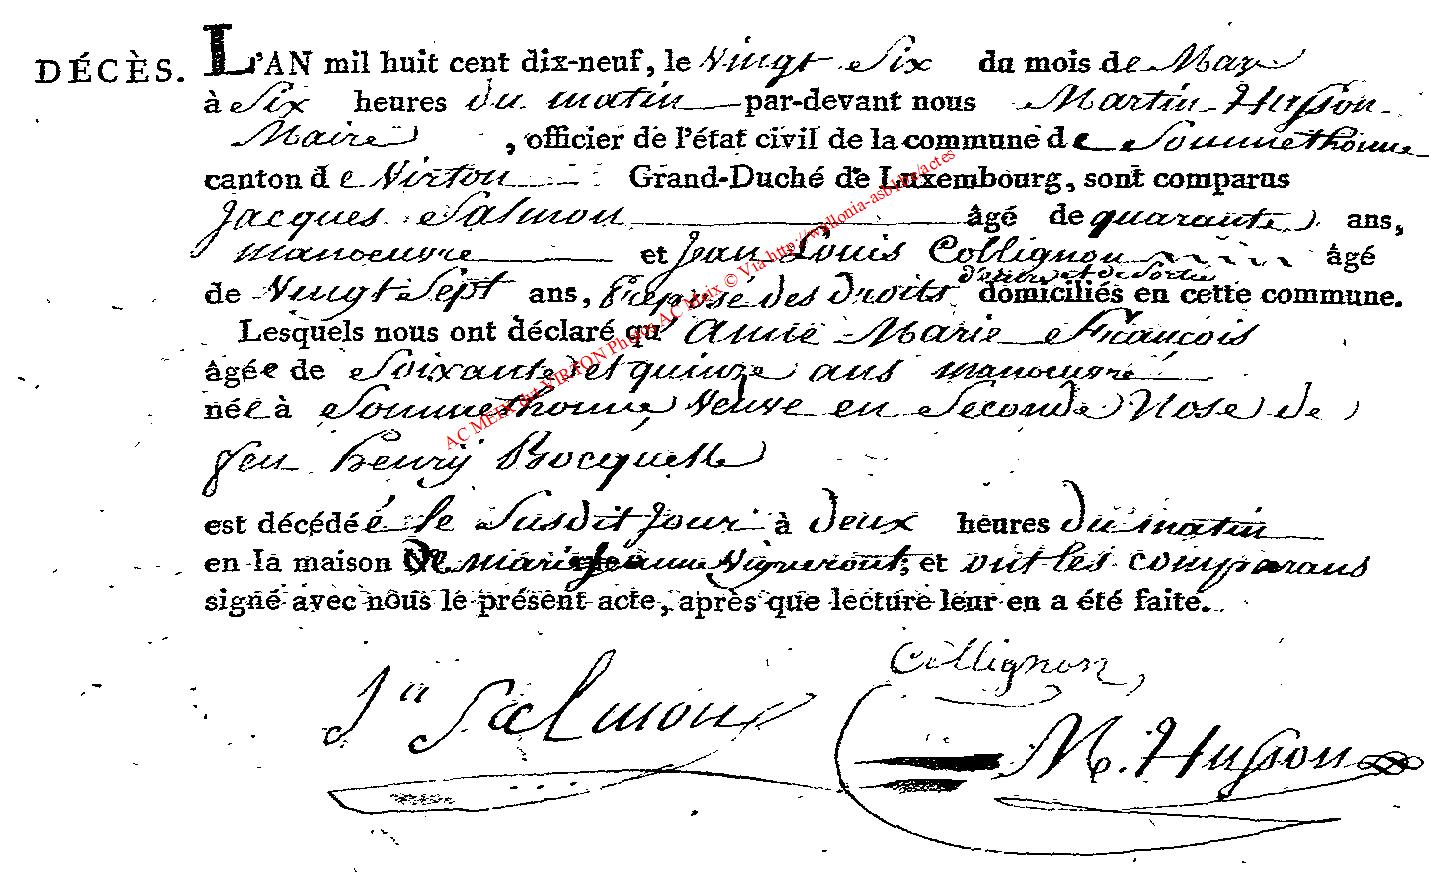 DÉCÈS. L'AN mil huit cent dix-neuf, le Vingt Six du mois de May
à Six heures du matin par-devant nous Martin Husson
Maire, officier de l'état civil de la commune de Sommethonne
canton de Virton Grand-Duché de Luxembourg, sont comparus
Jacques Salmon âgé de quarante ans,
manoeuvre et Jean Louis Collignon âgé
d'entrée et de Sortie
de Vingt Sept ans, Preposé des droits domiciliés en cette commune.
Lesquels nous ont déclaré qu'anne Marie François
âgée de Soixante et quinze ans manoeuvre
née à Sommethonne, Veuve en Seconde Nose de
feu henry Rocquelle
est décédée le Susdit Jour à deux heures du matin
en la maison de marie jeanne Vigneront, et ont les comparans
signé avec nous le présent acte, après que lecture leur en a été faite.
Collignon
Salmon
M. Husson
AC MEIX dvt VIRTON Photos AC Meix © Via http://wallonia-asbl.be/actes